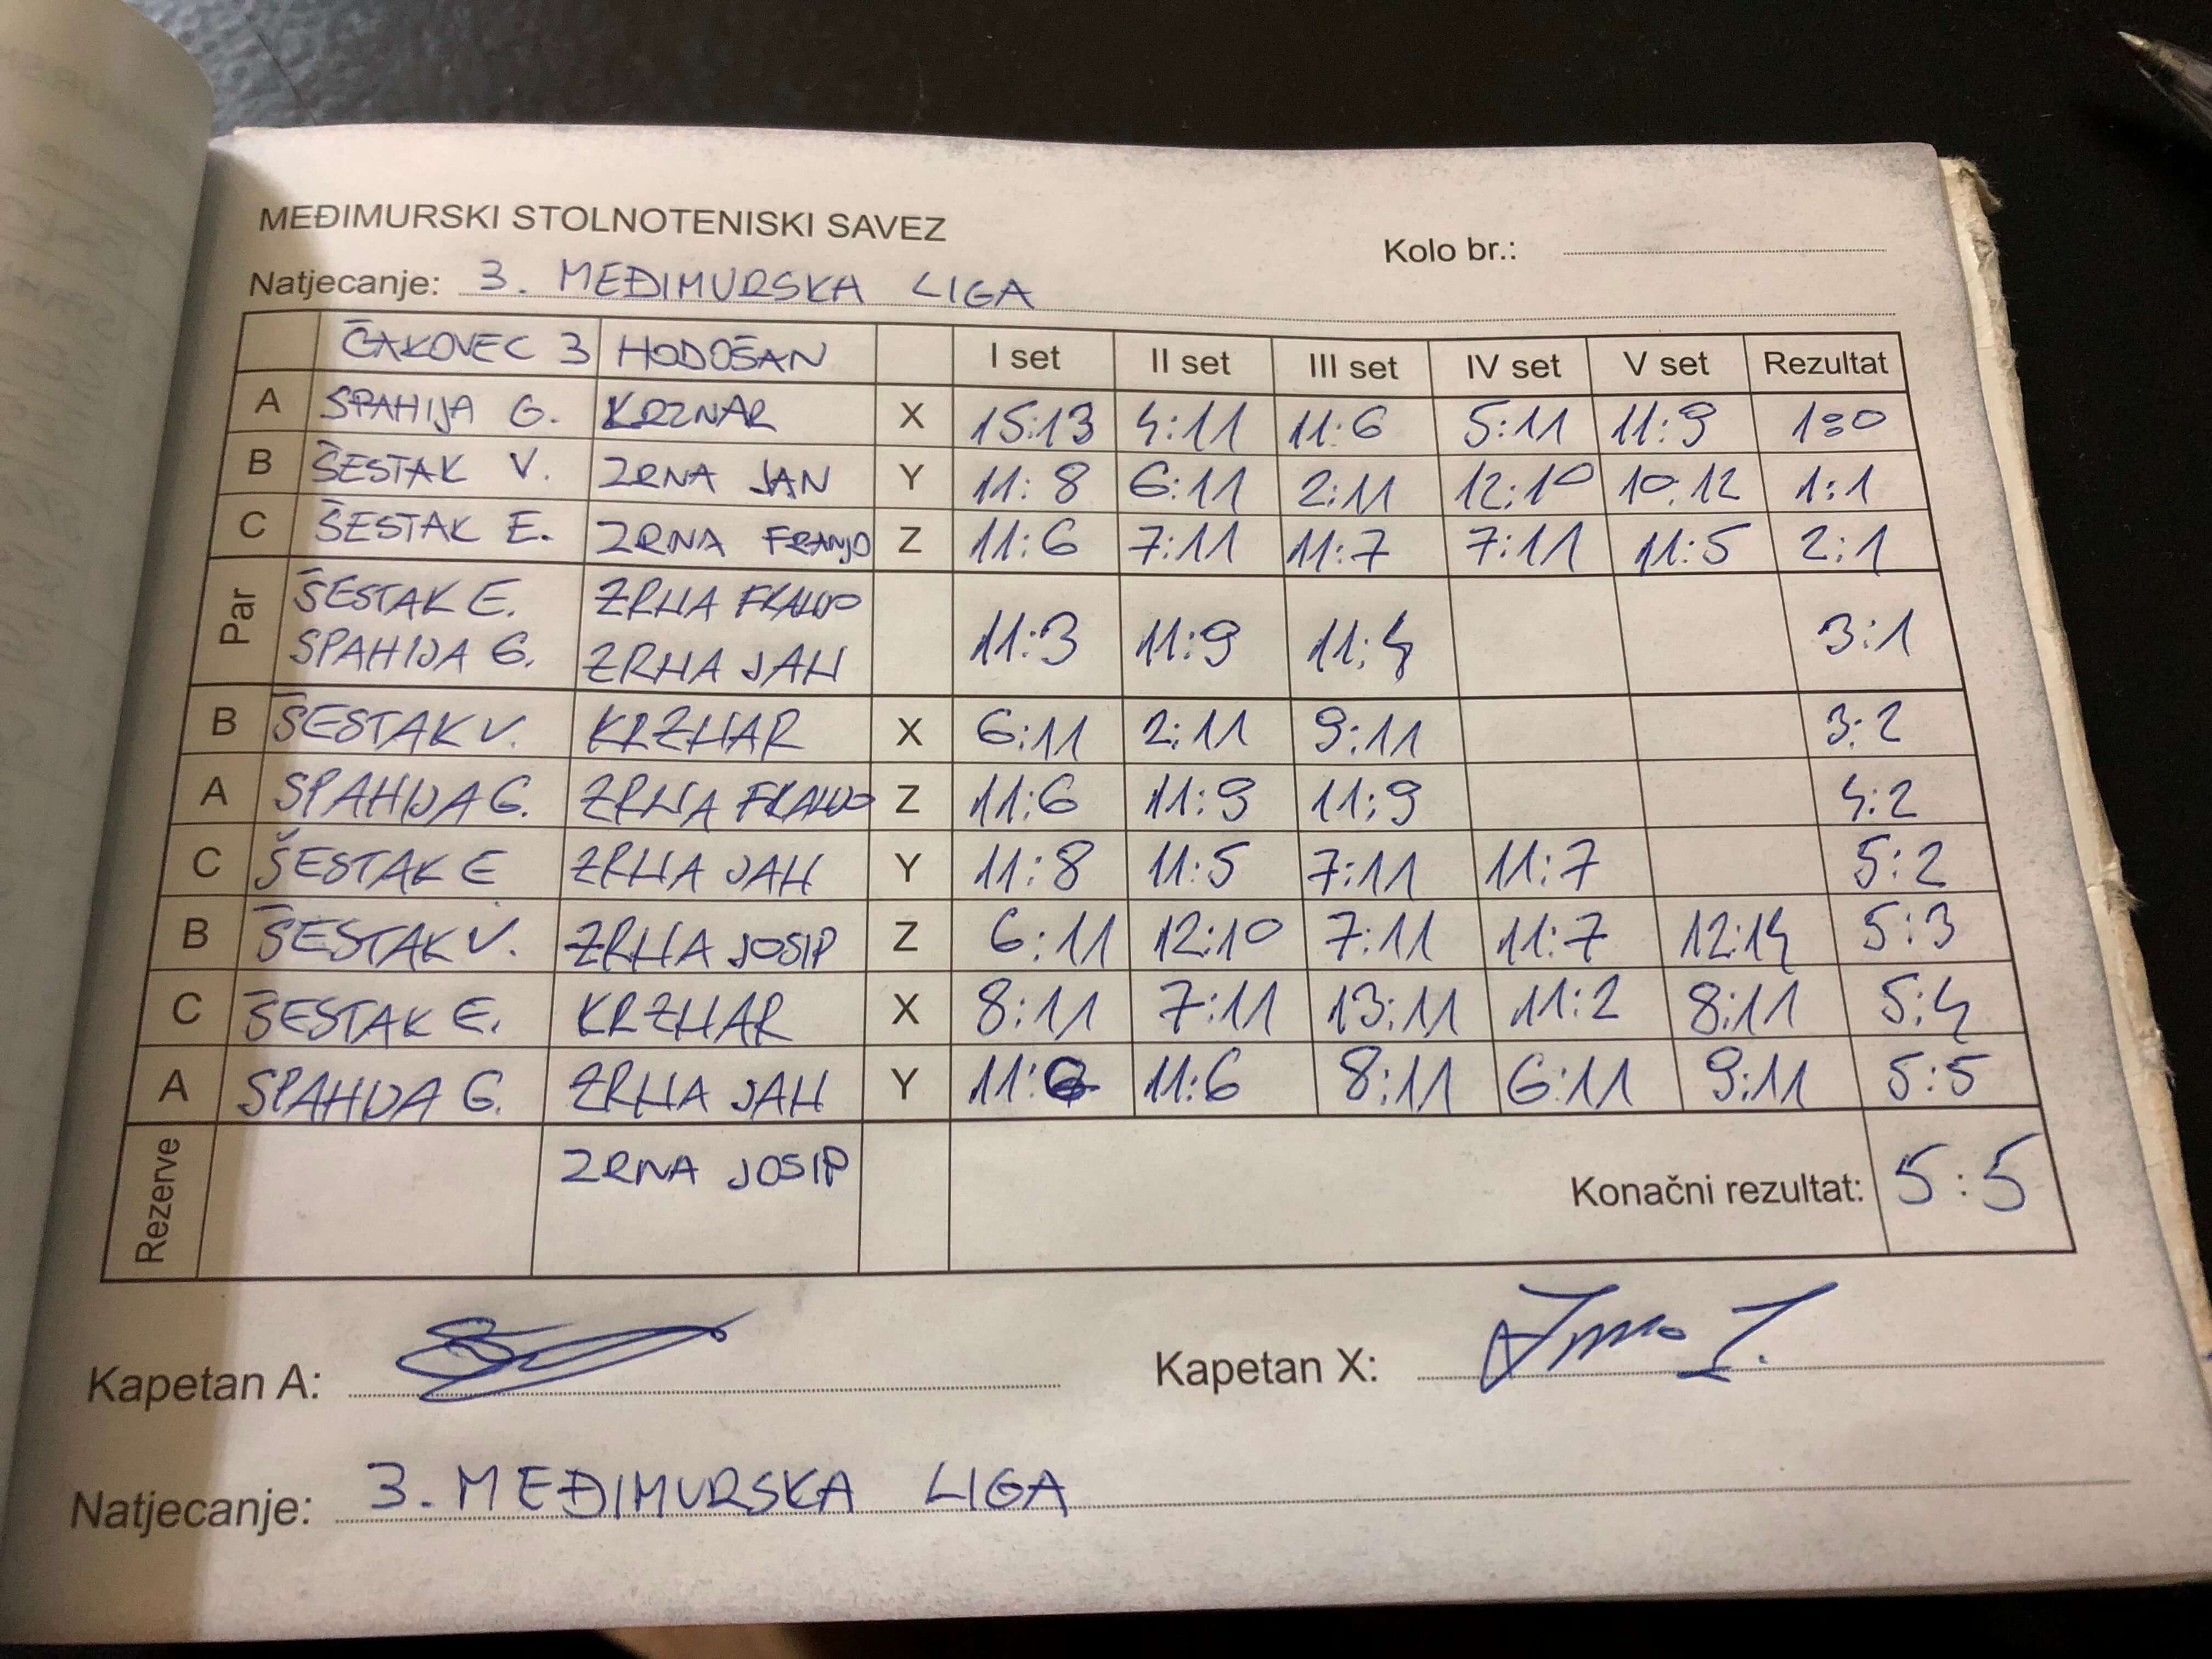 MEĐIMURSKI STOLNOTENISKI SAVEZ
Kolo br.:
Natjecanje: 3. MEĐIMURSKA LIGA
ČAKOVEC 3 HODOŠAN I set II set III set IV set V set Rezultat
A SPAHIJA G. KRZNAR X 15:13 4:11 11:6 5:11 11:9 1:0
B ŠESTAK V. ZRNA JAN Y 11:8 6:11 2:11 12:10 10:12 1:1
C ŠESTAK E. ZRNA FRANJO Z 11:6 7:11 11:7 7:11 11:5 2:1
Par ŠESTAK E. ZRNA FRANJO
SPAHIJA G. ZRNA JAN 11:3 11:9 11:4 3:1
B ŠESTAK V. KRZNAR X 6:11 2:11 9:11 3:2
A SPAHIJA G. ZRNA FRANJO Z 11:6 11:9 11:9 4:2
C ŠESTAK E ZRNA JAN Y 11:8 11:5 7:11 11:7 5:2
B ŠESTAK V. ZRNA JOSIP Z 6:11 12:10 7:11 11:7 12:14 5:3
C ŠESTAK E. KRZNAR X 8:11 7:11 13:11 11:2 8:11 5:4
A SPAHIJA G. ZRNA JAN Y 11:6 11:6 8:11 6:11 9:11 5:5
Rezerve ZRNA JOSIP Konačni rezultat: 5:5
Kapetan A: Kapetan X:
Natjecanje: 3. MEĐIMURSKA LIGA